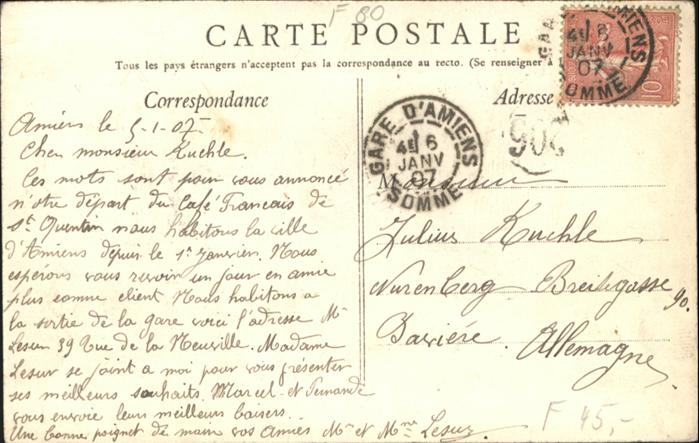 F 80
CARTE POSTALE
Tous les pays étrangers n'acceptent pas la correspondance au recto. (Se renseigner à
Correspondance
Amiens le 5-1-07
Cher monsieur Kuehle.
Ces mots sont pour vous annoncé
n'otre départ du Café Francais de
St Quentin nous habitons la ville
d'Amiens depuis le 1r Janvier. Nous
espérons vous revoir un jour en amie
plus comme client Nous habitons a
la sortie de la gare voici l'adresse Mr
Lesur 39 Rue de la Neuville. Madame
Lesur se joint a moi pour vous présenter
ses meilleurs souhaits. Marcel et Fernande
vous envoie leurs meilleurs baisers
Une bonne poignet de main vos Amies Mr et Mme Lesur
Adresse
Monsieur
Julius Kuehle
Nurenberg Breitegasse
90.
Bavière.
Allemagne
GARE D'AMIENS
4E 6
JANV
07
SOMME
GARE D'AMIENS
4E 6
JANV
07
SOMME
10
F 45,-